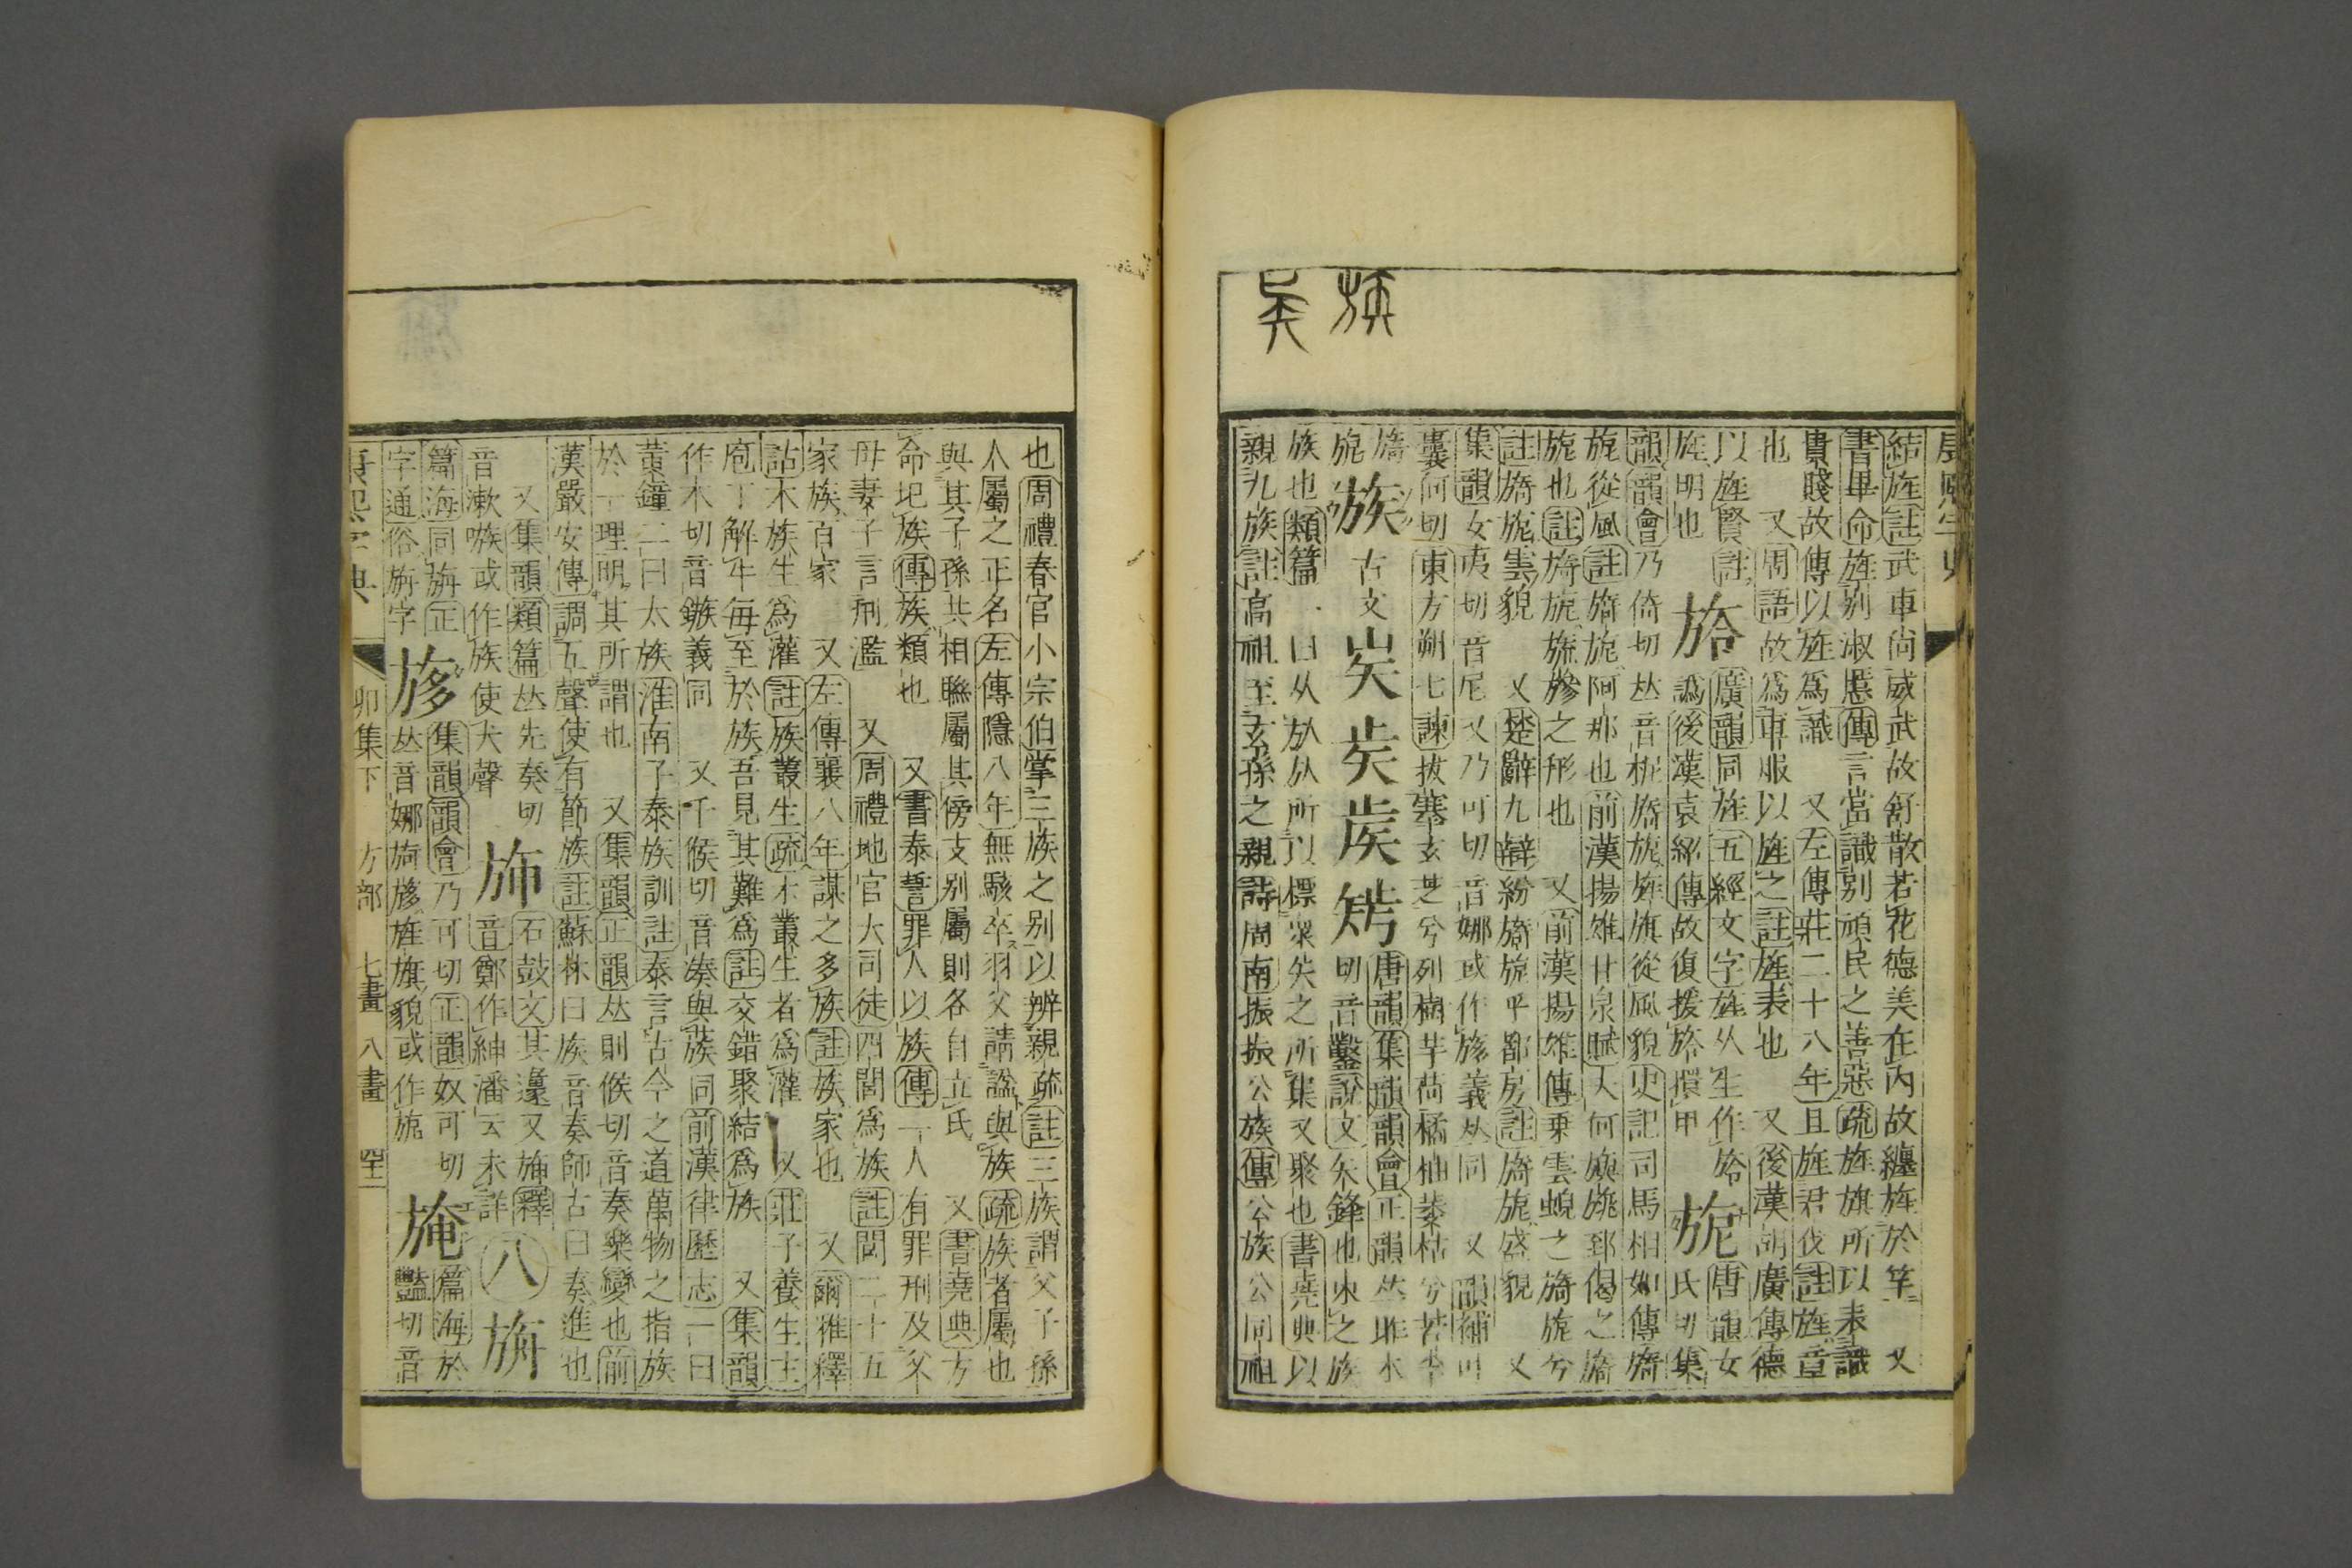 結旌註武車尚威武故舒散若花德美在內故纏旌於竿 又
書畢命旌別淑慝傳言當識別頑民之善惡疏旌旗所以表識
貴賤故傳以旌爲識 又左傳莊二十八年且旌君伐註旌章
也 又周語故爲車服以旌之註旌表也 又後漢胡廣傳德
以旌賢註
旌明也
廣韻同旌五經文字旌从生作
譌後漢袁紹傳故復援旍擐甲
旎
唐韻女
氏切集
韻韻會乃倚切𠀤音柅旖旎旌旗從風貌史記司馬相如傳旖
旎從風註旖旎阿那也前漢揚雄甘泉賦夫何旟旐郅偈之旖
旎也註旖旎旒㡓之形也 又前漢揚雄傳乗雲蜺之旖旎兮
註旖旎雲貌 又楚辭九辯紛旖旎乎都房註旖旎盛貌 又
集韻女夷切音尼 又乃可切音娜或作旑義𠀤同 又韻補叶
囊何切東方朔七諫拔搴玄芝兮列樹芋荷橘柚萎枯兮苦李
旖
旎
族
古文
唐韻集韻韻會正韻𠀤昨木
切音鑿說文矢鋒也束之族
族也類篇一曰从㫃㫃所以標衆矢之所集 又聚也書堯典以
親九族註高祖至玄孫之親詩周南振振公族傳公族公同祖
也周禮春官小宗伯掌三族之別以辨親疏註三族謂父子孫
人屬之正名左傳隱八年無駭卒羽父請諡與族疏族者屬也
與其子孫共相聯屬其傍支別屬則各自立氏 又書堯典方
命圮族傳族類也 又書泰誓罪人以族傳一人有罪刑及父
母妻子言刑濫 又周禮地官大司徒四閭爲族註閭二十五
家族百家 又左傳襄八年謀之多族註族家也 又爾雅釋
詁木族生爲灌註族叢生疏木叢生者爲灌 又莊子養生主
庖丁解牛每至於族吾見其難爲註交錯聚結爲族 又集韻
作木切音鏃義同 又千候切音湊與蔟同前漢律歷志一曰
黃鐘二曰太族淮南子泰族訓註泰言古今之道萬物之指族
於一理明其所謂也 又集韻正韻𠀤則候切音奏樂變也前
漢嚴安傳調五聲使有節族註蘇林曰族音奏師古曰奏進也
又集韻類篇𠀤先奏切
音漱嗾或作族使犬聲
石鼓文其邍又旆釋
音鄭作紳潘云未詳
八
旃
篇海同旃正
字通俗旃字
集韻韻會乃可切正韻奴可切
𠀤音娜旖旎旌旗貌或作旎
篇海於
豔切音
卯集下 方部 七畫 八畫